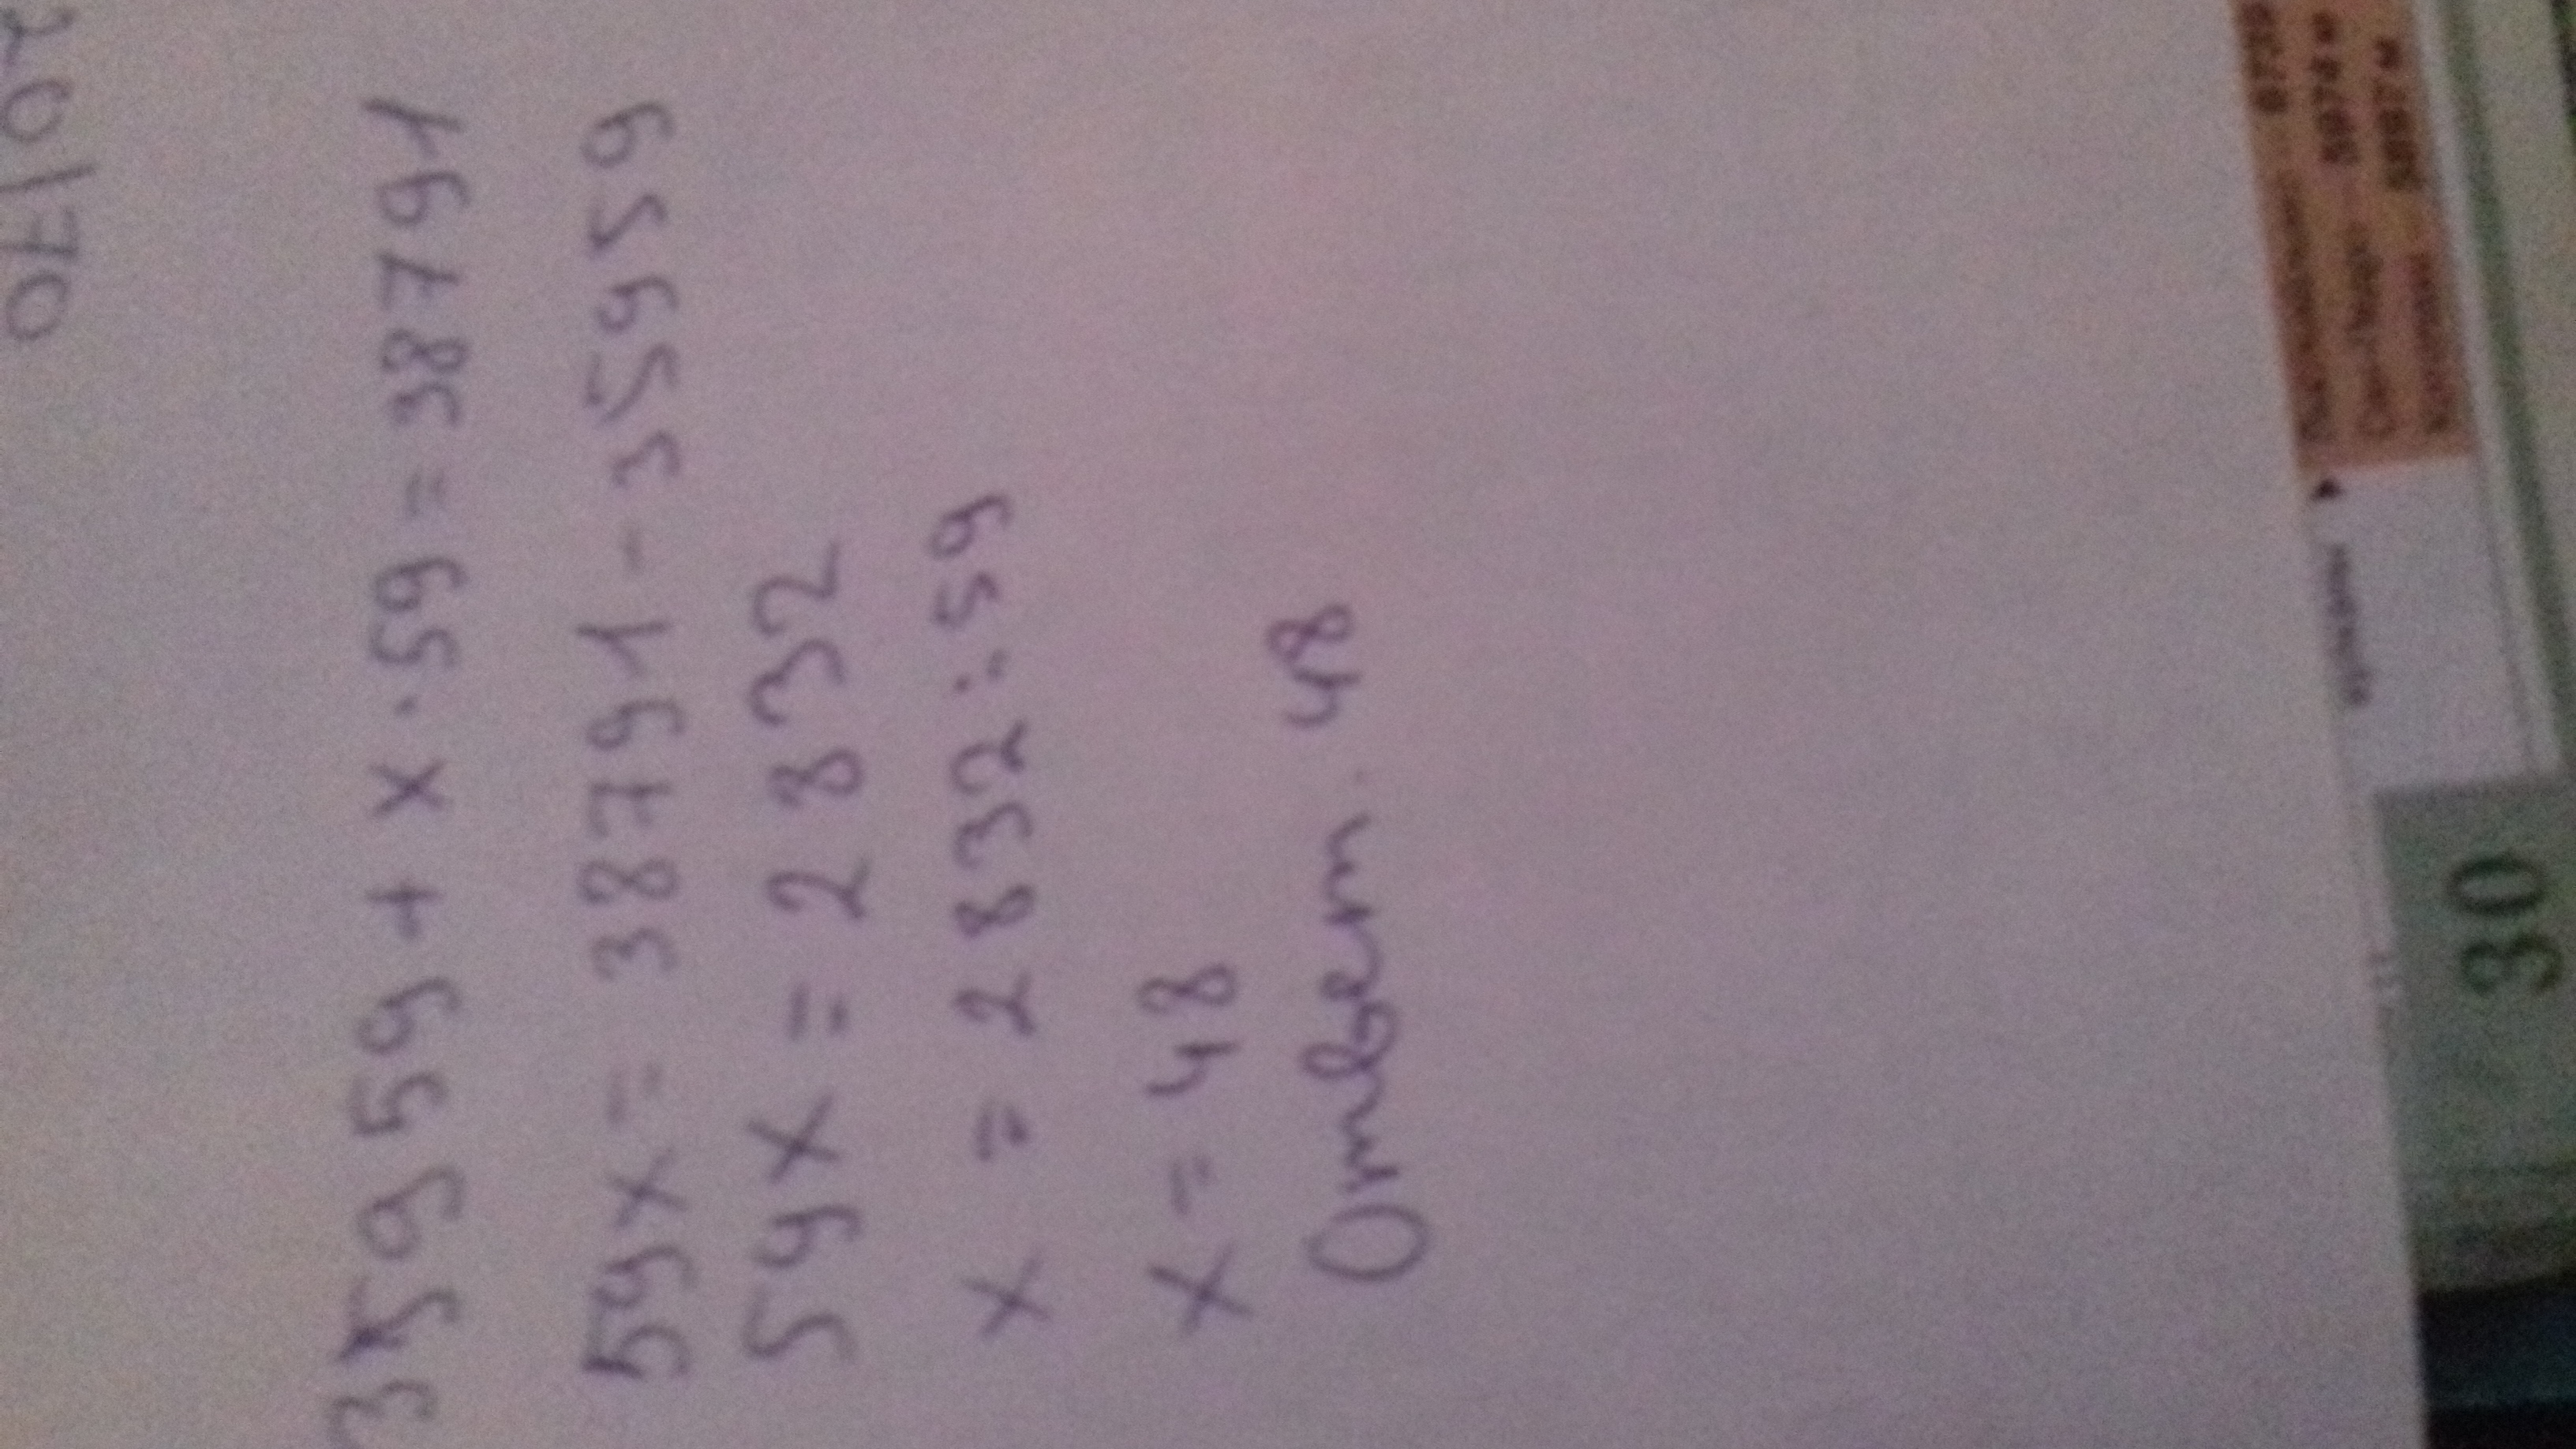 35959 + x · 59 = 38791
59x = 38791 - 35959
59x = 2832
x = 2832 : 59
x = 48
Ответ. 48
30